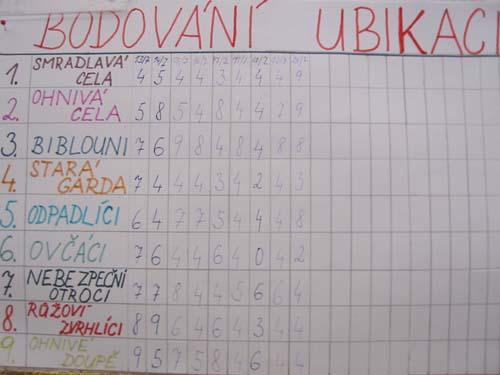 BODOVÁNÍ UBIKACÍ
1. SMRADLAVÁ CELA 4 5 4 4 3 4 4 4 9
2. OHNIVÁ CELA 5 8 5 4 8 4 4 2 9
3. BIBLOUNI 7 6 9 8 4 8 4 8 8
4. STARÁ GARDA 7 4 4 4 3 4 2 4 3
5. ODPADLÍCI 6 4 7 7 5 4 4 4 8
6. OVČÁCI 7 6 4 4 6 4 0 4 2
7. NEBEZPEČNÍ OTROCI 7 7 8 4 4 5 6 6 4
8. RŮŽOVÍ ZVRHLÍCI 8 9 6 4 6 4 3 4 4
9. OHNIVÉ DOUPĚ 9 5 7 5 8 4 6 4 4